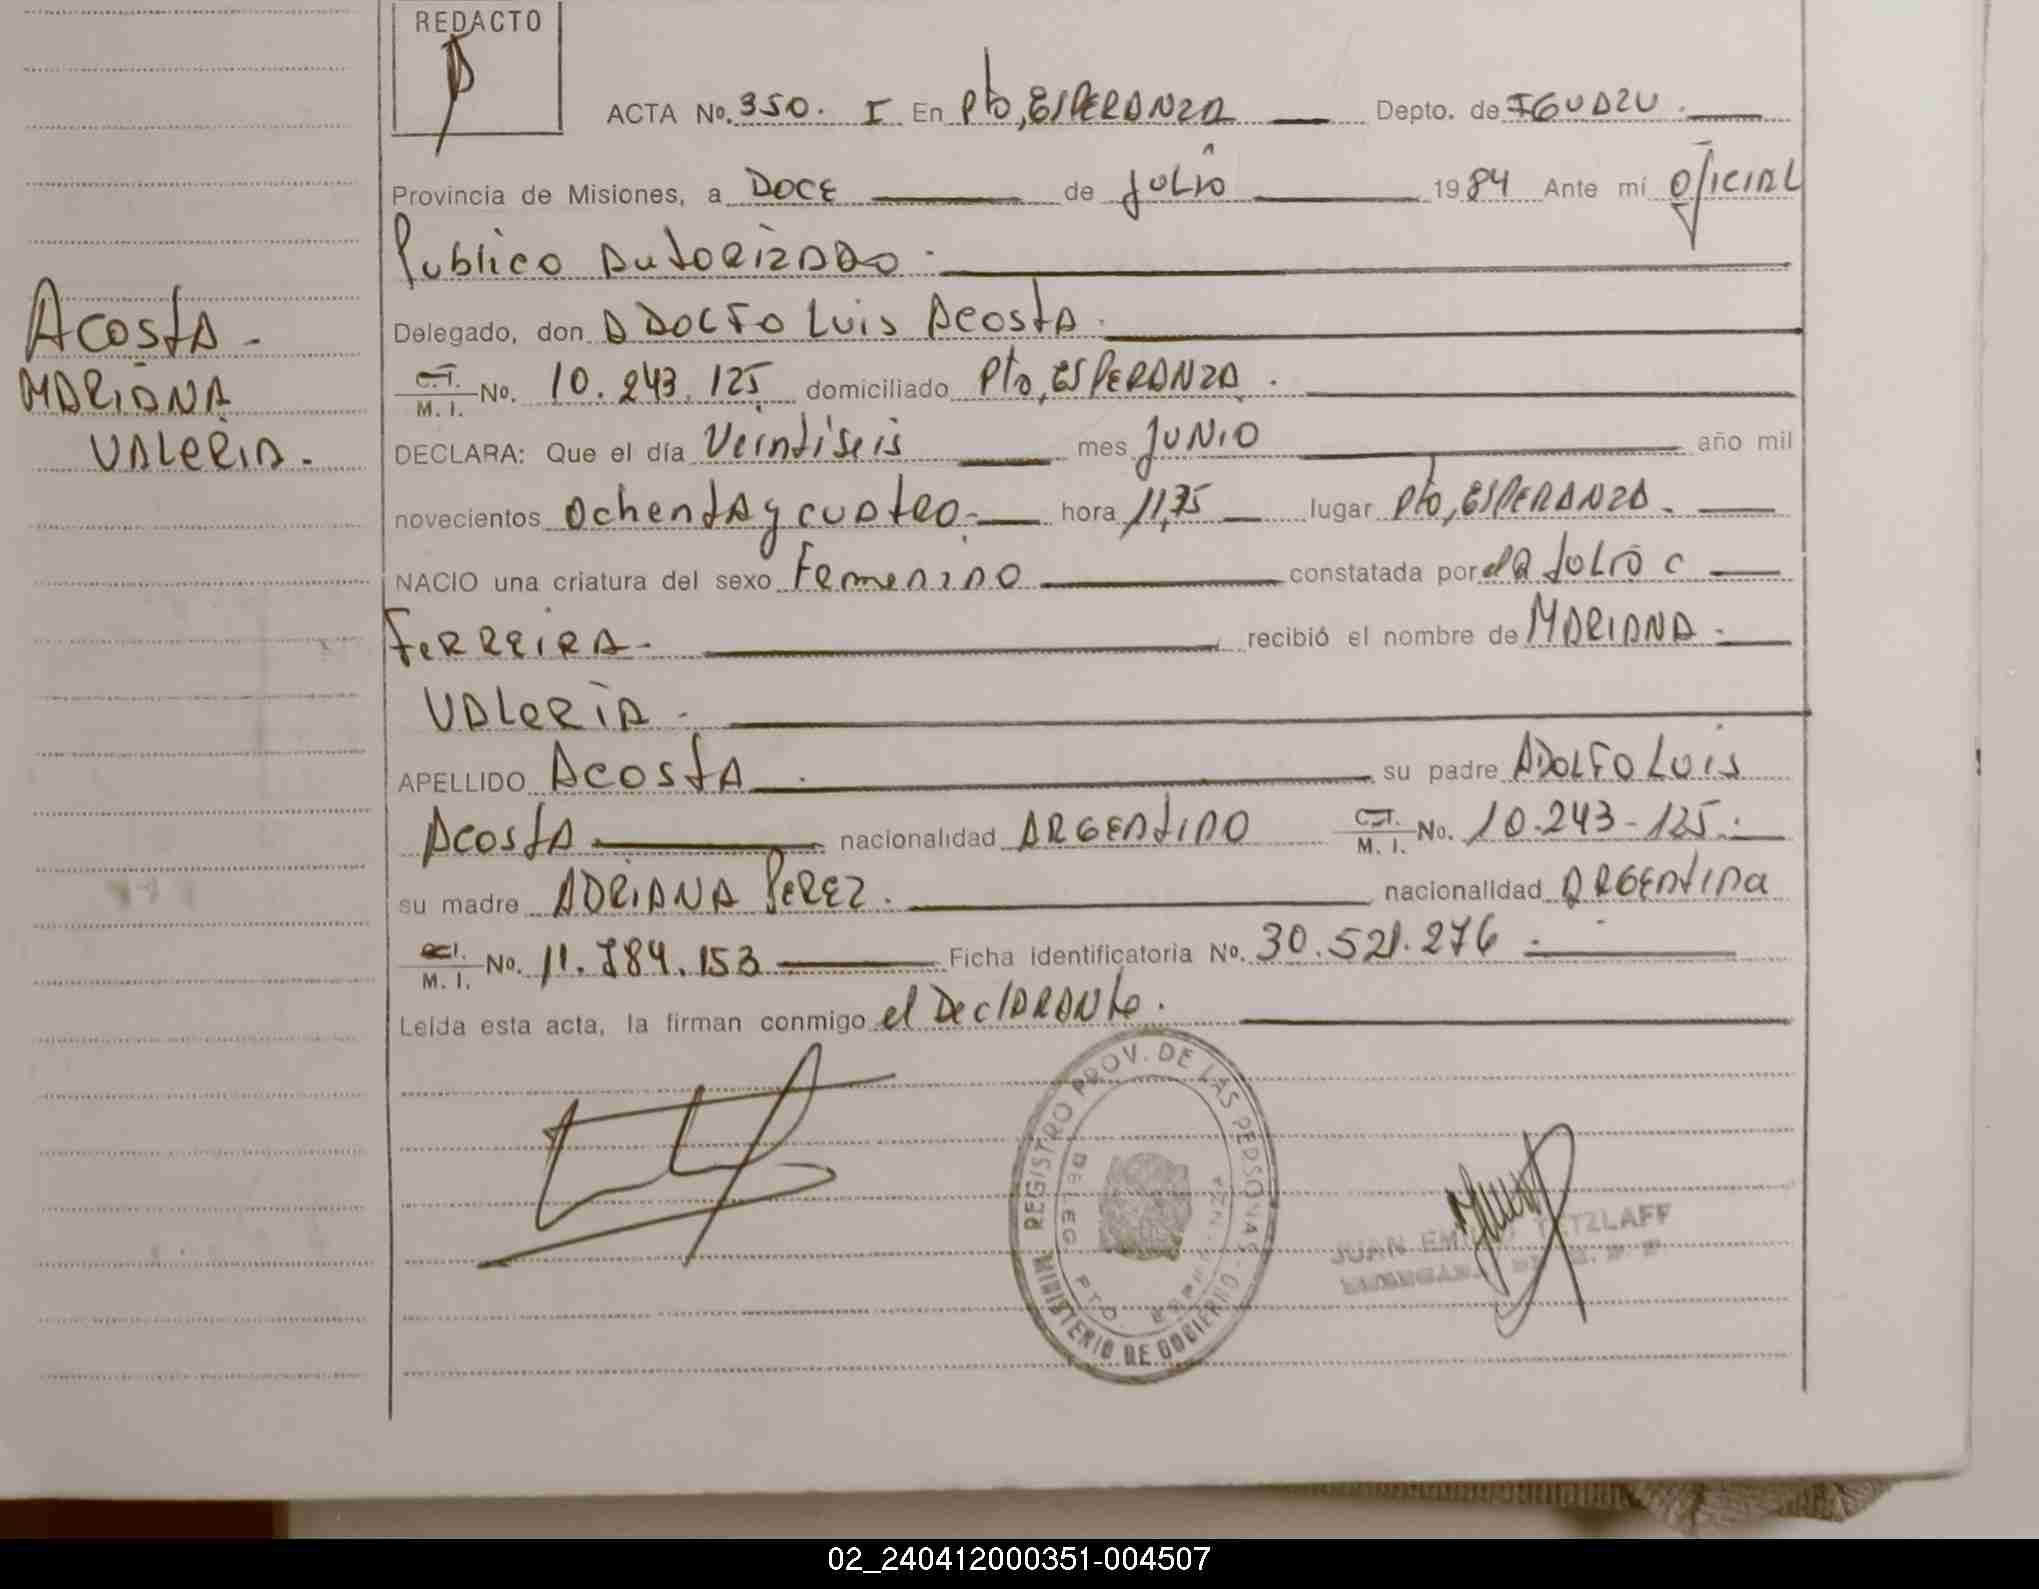 REDACTO
ACTA No. 350. I En Pto, ESPERANZA Depto. de IGUAZU.
Provincia de Misiones, a DOCE de JULIO 1984 Ante mí OFICIAL
Publico AUTORIZADO.
Delegado, don ADOLFO LUIS ACOSTA.
C.I. M. I. No. 10.243.125 domiciliado Pto, ESPERANZA.
DECLARA: Que el día Veintiseis mes JUNIO año mil
novecientos Ochenta y cuatro hora lugar Pto, ESPERANZA.
NACIO una criatura del sexo Femenino constatada por JULIO C
FERREIRA recibió el nombre de MARIANA
VALERIA
APELLIDO ACOSTA su padre ADOLFO LUIS
ACOSTA nacionalidad ARGENTINO C.I. M. I. No. 10.243-125
su madre ADRIANA PEREZ. nacionalidad ARGENTINA
M. I. No. 11.784.153 Ficha identificatoria No. 30.521.276
Leída esta acta, la firman conmigo el DeclaRANte.
ACOSTA
MARIANA
VALERIA.
REGISTRO PROV. DE LAS PERSONAS
MINISTERIO DE GOBIERNO
DELEG PTO.
JUAN TETZLAFF
02_240412000351-004507